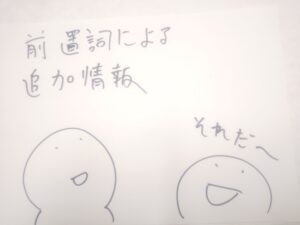 前置詞による
追加情報
それだへ